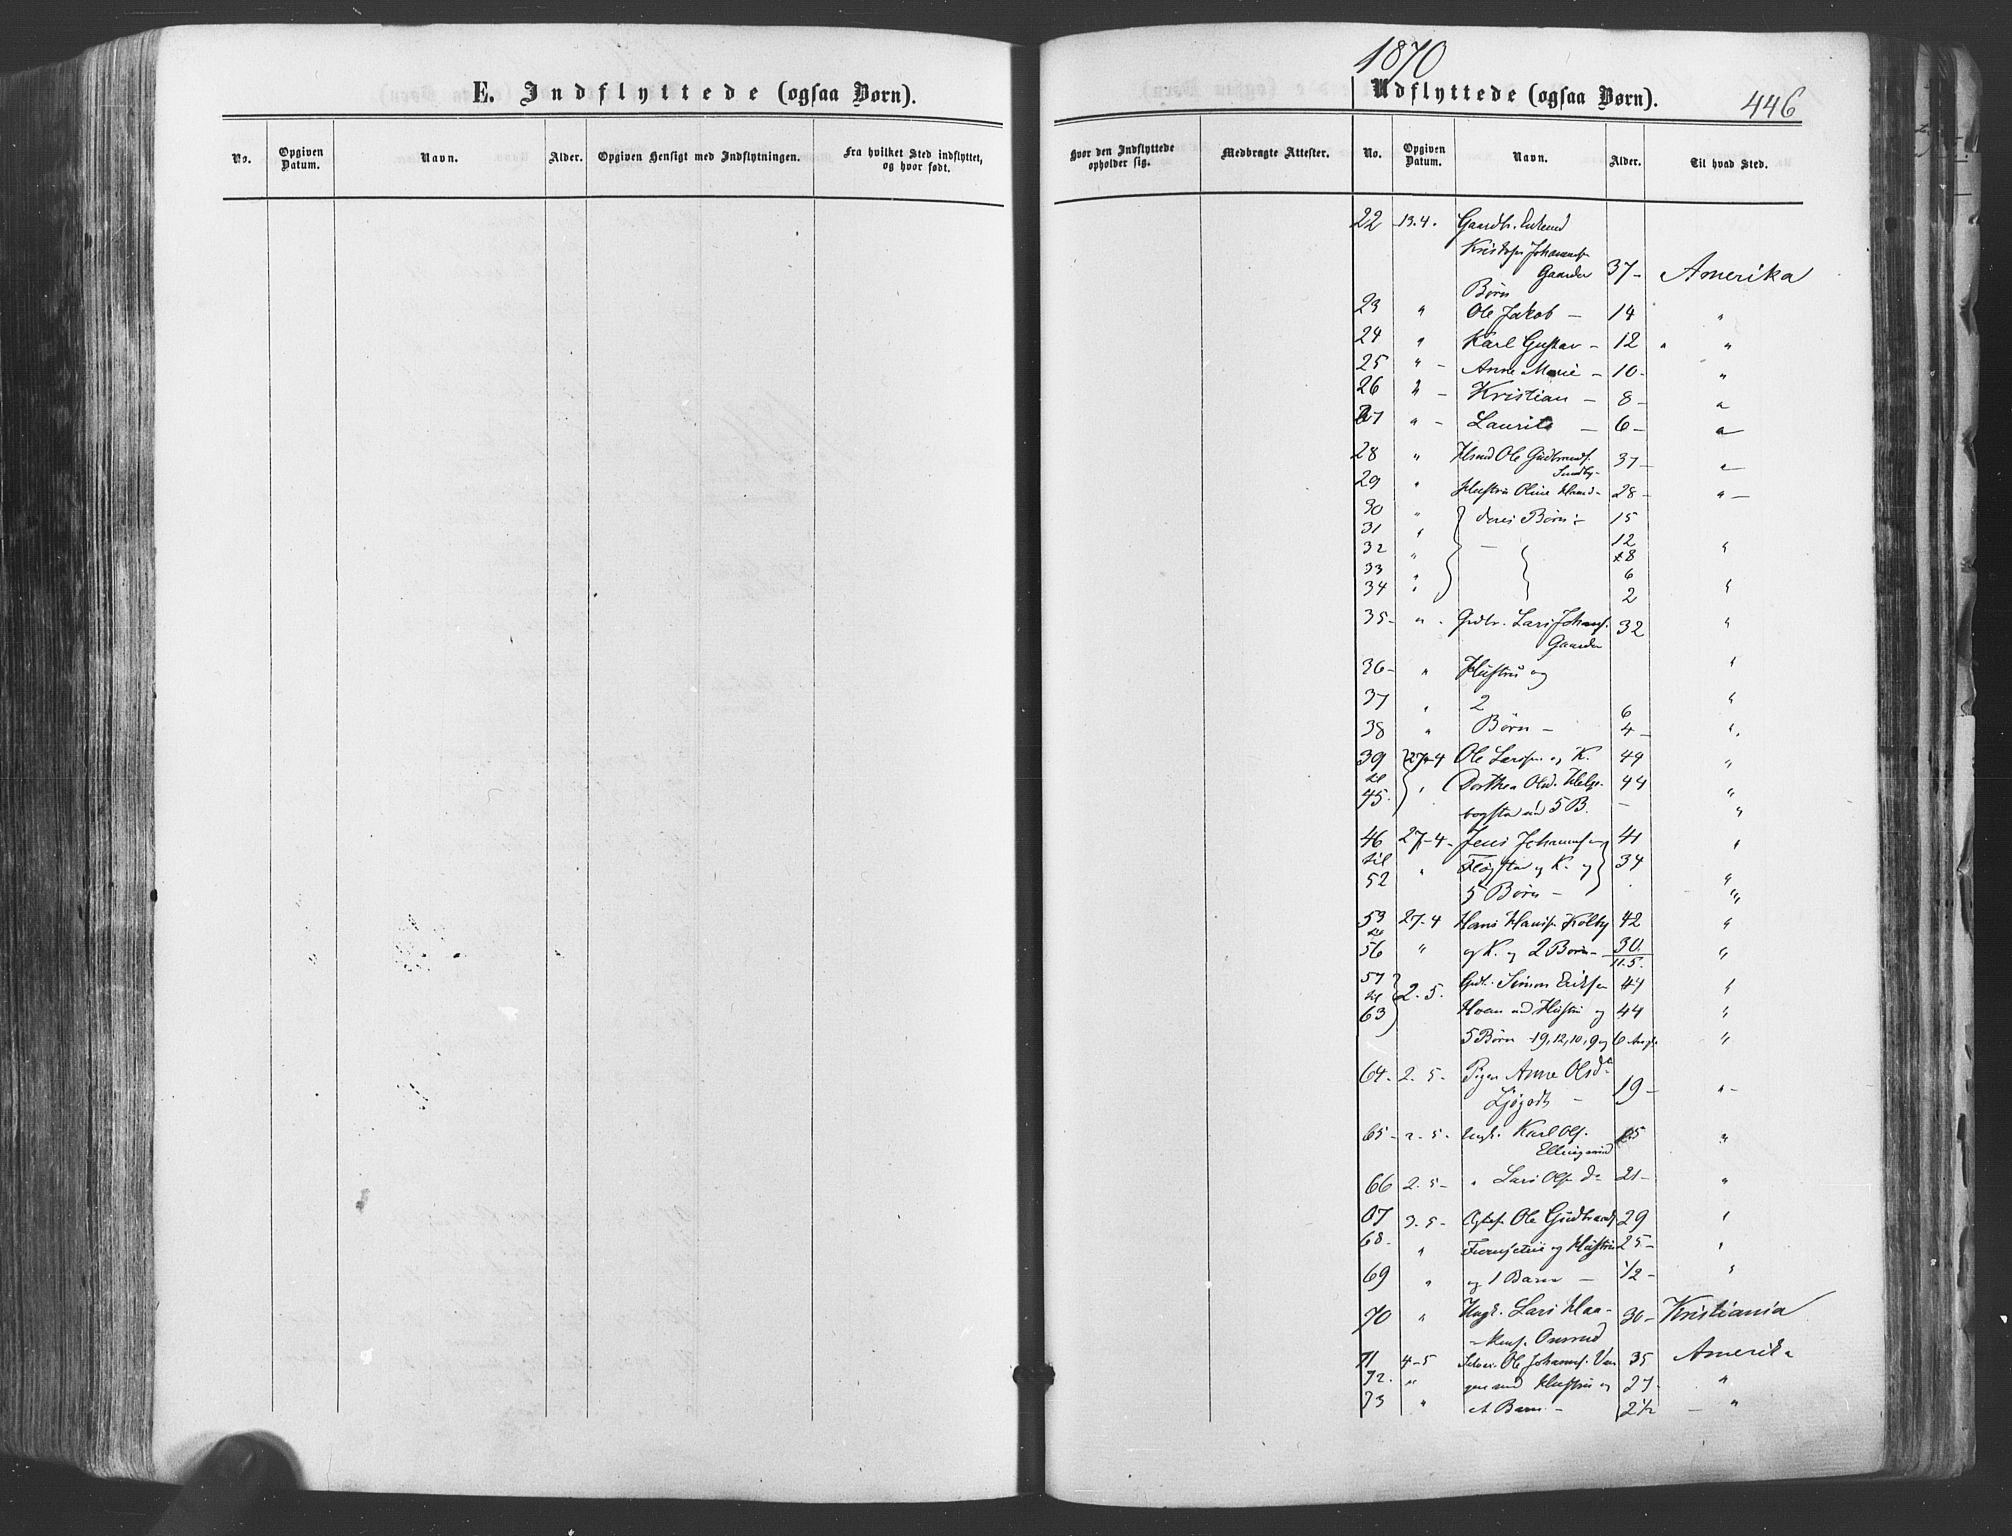 1870
E. Indflyttede (ogsaa Børn).
Udflyttede (ogsaa Børn).
446
No. Opgiven Datum. Navn. Alder. Opgiven Hensigt med Indflytningen. Fra hvilket Sted indflyttet, og hvor født.
Hvor den Indflyttede opholder sig. Medbragte Attester. No. Opgiven Datum. Navn. Alder. Til hvad Sted.
22 13.4. Gaardbr. Enkemd
Kristofer Johannes.
Gaarder 37- Amerika
Børn
23 " Ole Jakob - 14 "
24 " Karl Gustav - 12 " "
25 " - Anne Marie - 10- "
26 " - Kristian - 8- "
27 " - Laurits - 6- "
28 " Hsmd Ole Gudbrands. 37- "
Sundby-
29 " Hustru Oline Hansd- 28- " -
30 " deres Børn :- 15
31 " 12
32 " - 8 "
33 " 6
34 " 2 "
35- " - Grdbr. Lars Johans. 32 "
Gaarder
36- " Hustru og "
37 " 2 6 "
38 " Børn - 4- "
39 27-4 Ole Larsen og K. 49 "
til
45. " Dorthea Olsd. Helge- 44 "
bogstad md 5 B. - "
46 27-4- Jens Johannes. 41 "
til
52 " og K. og 34 "
5 Børn - "
53 27-4 Hans Hansen Kolby 42 "
til
56 " og K. og 2 Børn- 30. "
11.5.
57 2.5. Grdbr. Simon Eriksen 44 "
til
63 Hoen md Hustru og 44 "
5 Børn -19, 12, 10, 9 og 6 "
64- 2-5- Pigen Anne Olsda
Ljøgodt - 19- "-
65- 2-5- Ungk. Karl Ols. 15 "
Ellingsrud
66 2.5- " Lars Ols. do 21- "
67 3-5- Ole Gudbrands 29 "
68- " og Hustru 25- "
69 " og 1 Barn - 1/2- "
70 " Ungk. Lars Haa- 30- Kristiania
-kens. Onsrud
71 4-5 Ole Johanns. Van 35 Amerika
72. " gen med Hustru og 27- "
73 " et Barn - 2 1/2 - "